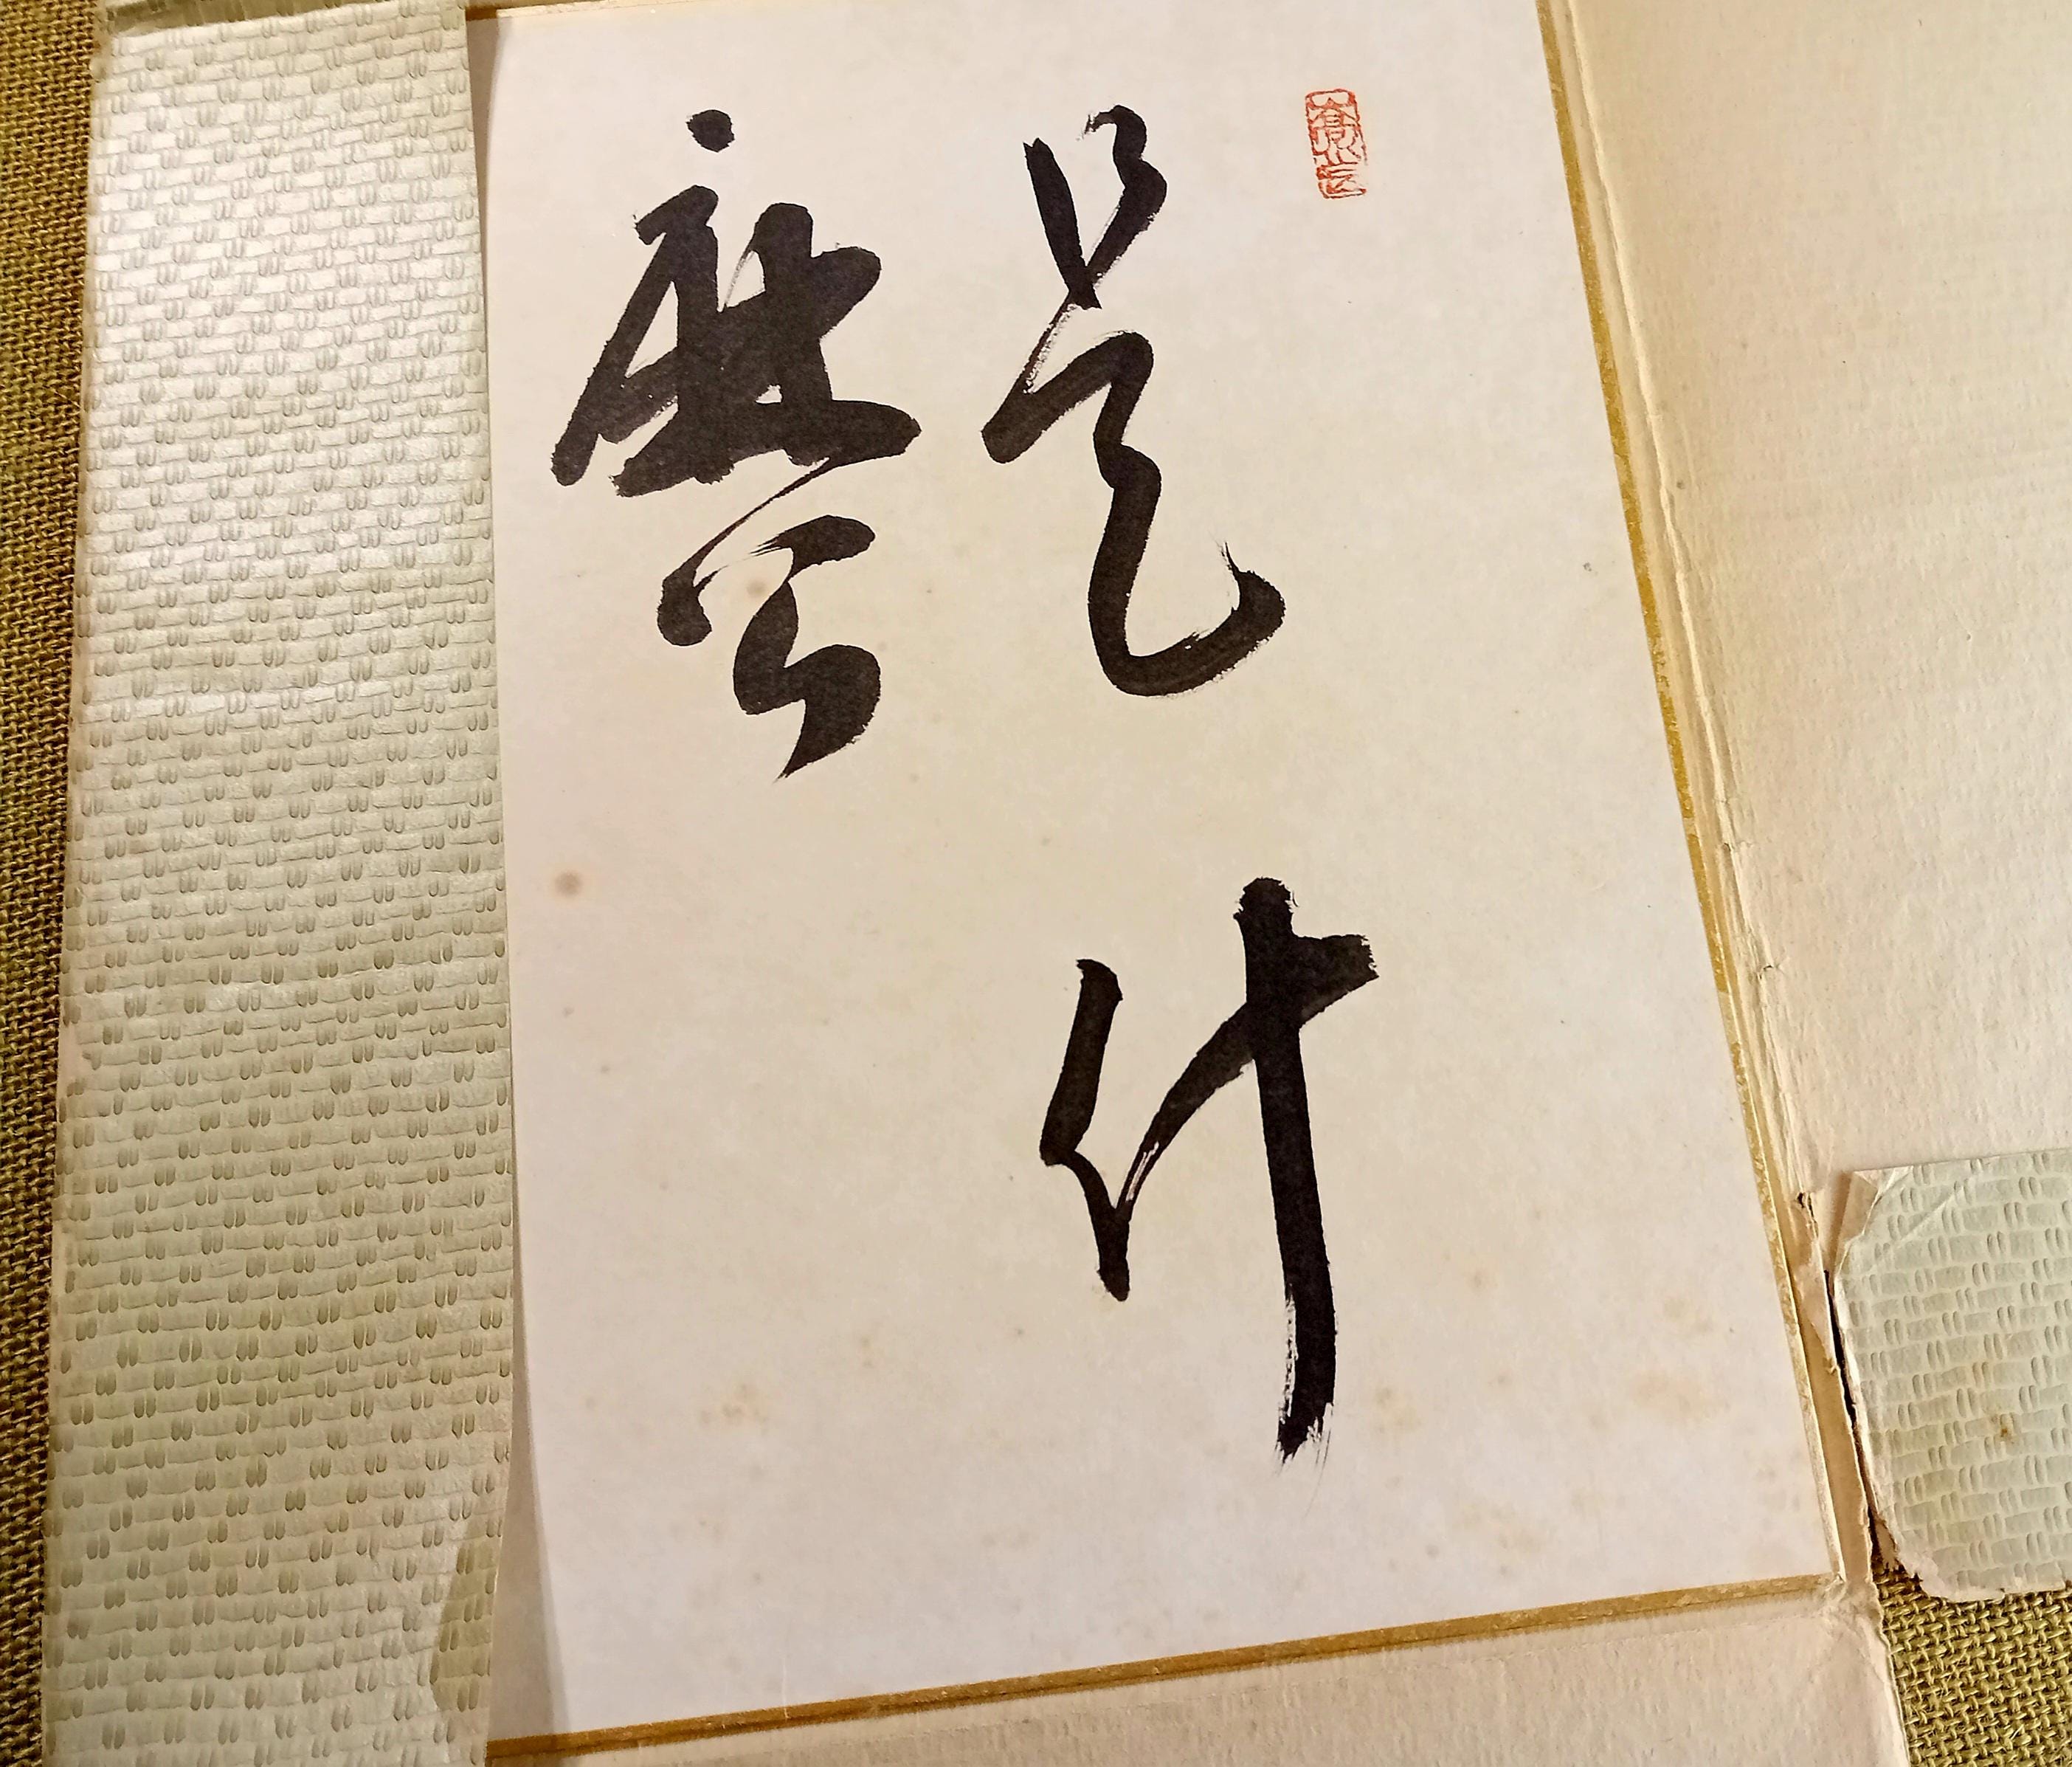 是什
麼